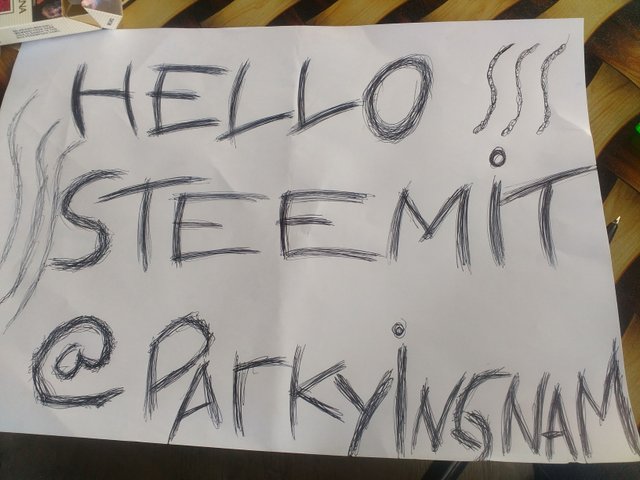 HELLO
STEEMiT
@PArKYiNGNAM